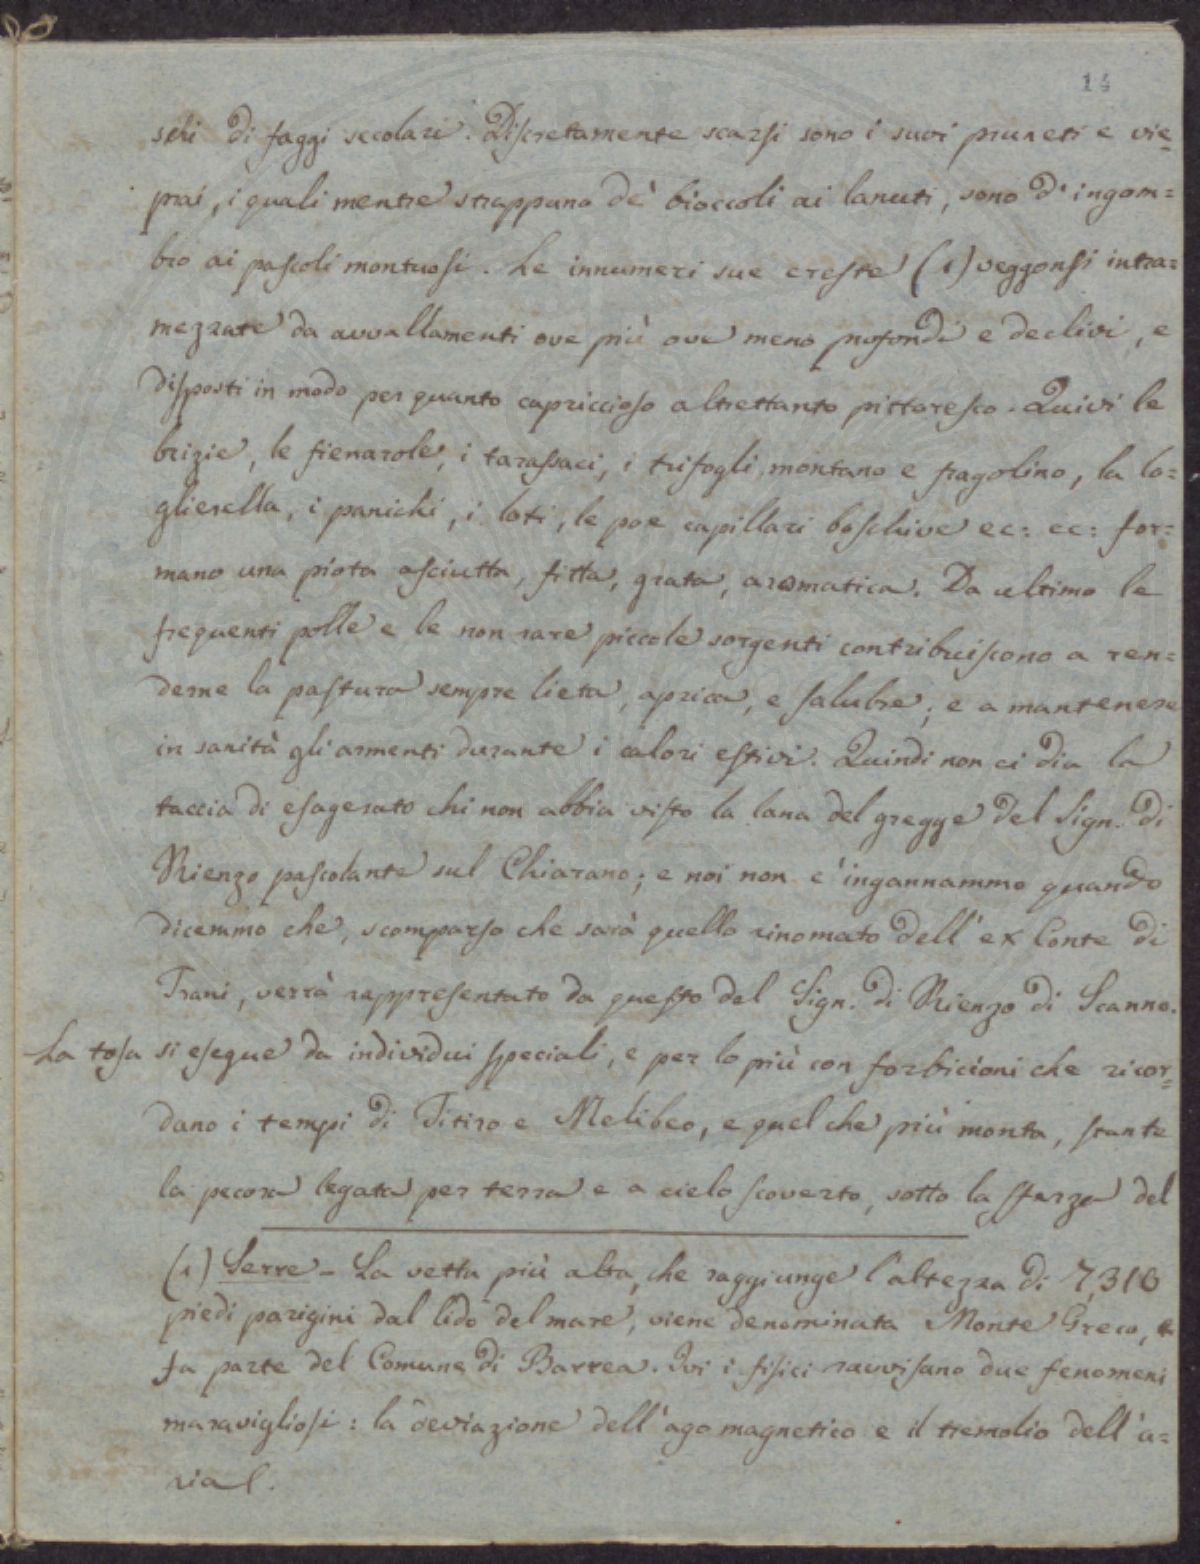 14
schi di faggi secolari. Discretamente scarsi sono i suoi pruneti e vie=
prai, i quali mentre strappano de' bioccoli ai lanuti, sono d'ingom=
bro ai pascoli montuosi. Le innumeri sue creste (1) veggonsi intra=
mezzate da avvallamenti ove più ove meno profondi e declivi, e
disposti in modo per quanto capriccioso altrettanto pittoresco. Quivi le
brizie, le fienarole, i tarassaci, i trifogli montano e fragolino, la lo=
glierella, i panichi, i loti, le poe capillari boschive ec: ec: for=
mano una piota asciutta, fitta, grata, aromatica. Da ultimo le
frequenti polle e le non rare piccole sorgenti contribuiscono a ren=
derne la pastura sempre lieta, aprica, e salubre; e a mantenere
in sanità gli armenti durante i calori estivi. Quindi non ci dia la
taccia di esagerato chi non abbia visto la lana del gregge del Sign. di
Rienzo pascolante sul Chiarano; e noi non c'ingannammo quando
dicemmo che, scomparso che sarà quello rinomato dell'ex Conte di
Trani, verrà rappresentato da questo del Sign. di Rienzo di Scanno.
La tosa si esegue da individui speciali, e per lo più con forbicioni che ricor=
dano i tempi di Titiro e Melibeo, e quel che più monta, stante
la pecora legata per terra e a cielo scoverto, sotto la sferza del
(1) Serre - La vetta più alta, che raggiunge l'altezza di 7,316
piedi parigini dal lido del mare, viene denominata Monte Greco, e
fa parte del Comune di Barrea. Ivi i fisici ravvisano due fenomeni
maravigliosi: la deviazione dell'ago magnetico e il tremolio dell'a=
ria.